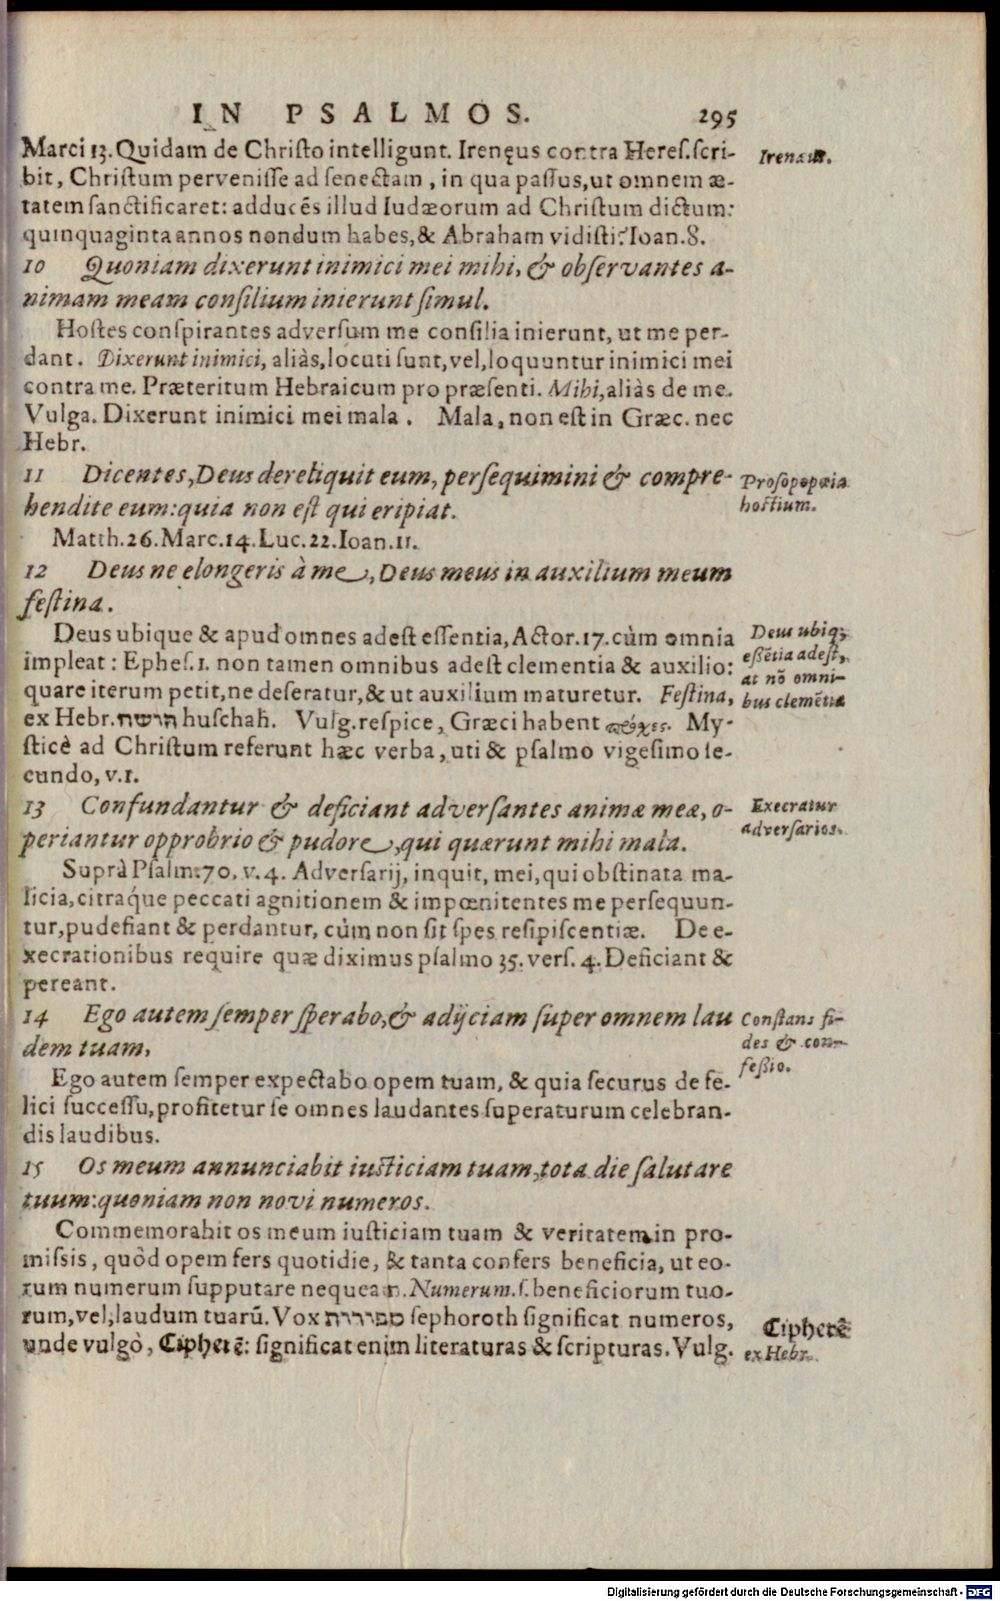 IN PSALMOS. 295
Marci 13. Quidam de Christo intelligunt. Irenęus contra Heres. scri-
bit, Christum pervenisse ad senectam, in qua passus, ut omnem æ-
tatem sanctificaret: adducẽs illud Iudæorum ad Christum dictum:
quinquaginta annos nondum habes, & Abraham vidisti? Ioan. 8.
Irenæus.
10 Quoniam dixerunt inimici mei mihi, & observantes a-
nimam meam consilium inierunt simul.
Hostes conspirantes adversum me consilia inierunt, ut me per-
dant. Dixerunt inimici, aliàs, locuti sunt, vel, loquuntur inimici mei
contra me. Præteritum Hebraicum pro præsenti. Mihi, aliàs de me.
Vulga. Dixerunt inimici mei mala. Mala, non est in Græc. nec
Hebr.
11 Dicentes, Deus dereliquit eum, persequimini & compre-
hendite eum: quia non est qui eripiat.
Prosopopœia
hostium.
Matth. 26. Marc. 14. Luc. 22. Ioan. 11.
12 Deus ne elongeris à me, Deus meus in auxilium meum
festina.
Deus ubique & apud omnes adest essentia, Actor. 17. cùm omnia
impleat: Ephes. 1. non tamen omnibus adest clementia & auxilio:
quare iterum petit, ne deseratur, & ut auxilium maturetur. Festina,
ex Hebr. חושה huschah. Vulg. respice, Græci habent πρόχες. My-
sticè ad Christum referunt hæc verba, uti & psalmo vigesimo se-
cundo, v. 1.
Deus ubiq;
essẽtia adest,
at nõ omni-
bus clemẽtia
13 Confundantur & deficiant adversantes animæ meæ, o-
periantur opprobrio & pudore, qui quærunt mihi mala.
Execratur
adversarios.
Suprà Psalm. 70. v. 4. Adversarij, inquit, mei, qui obstinata ma-
licia, citráque peccati agnitionem & impœnitentes me persequun-
tur, pudefiant & perdantur, cùm non sit spes resipiscentiæ. De e-
xecrationibus require quæ diximus psalmo 35. vers. 4. Deficiant &
pereant.
14 Ego autem semper sperabo, & adijciam super omnem lau
dem tuam.
Constans fi-
des & con-
fessio.
Ego autem semper expectabo opem tuam, & quia securus de fe-
lici successu, profitetur se omnes laudantes superaturum celebran-
dis laudibus.
15 Os meum annunciabit iusticiam tuam, tota die salutare
tuum: quoniam non novi numeros.
Commemorabit os meum iusticiam tuam & veritatem in pro-
missis, quòd opem fers quotidie, & tanta confers beneficia, ut eo-
rum numerum supputare nequeam. Numerum. s. beneficiorum tuo-
rum, vel, laudum tuarũ. Vox ספורות sephoroth significat numeros,
unde vulgò, Cipherẽ: significat enim literaturas & scripturas. Vulg.
Cipherẽ
ex Hebr.
Digitalisierung gefördert durch die Deutsche Forschungsgemeinschaft - DFG